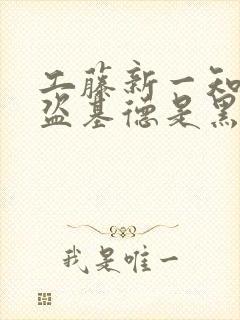 工藤新一知
盗基德是黑
我是唯一